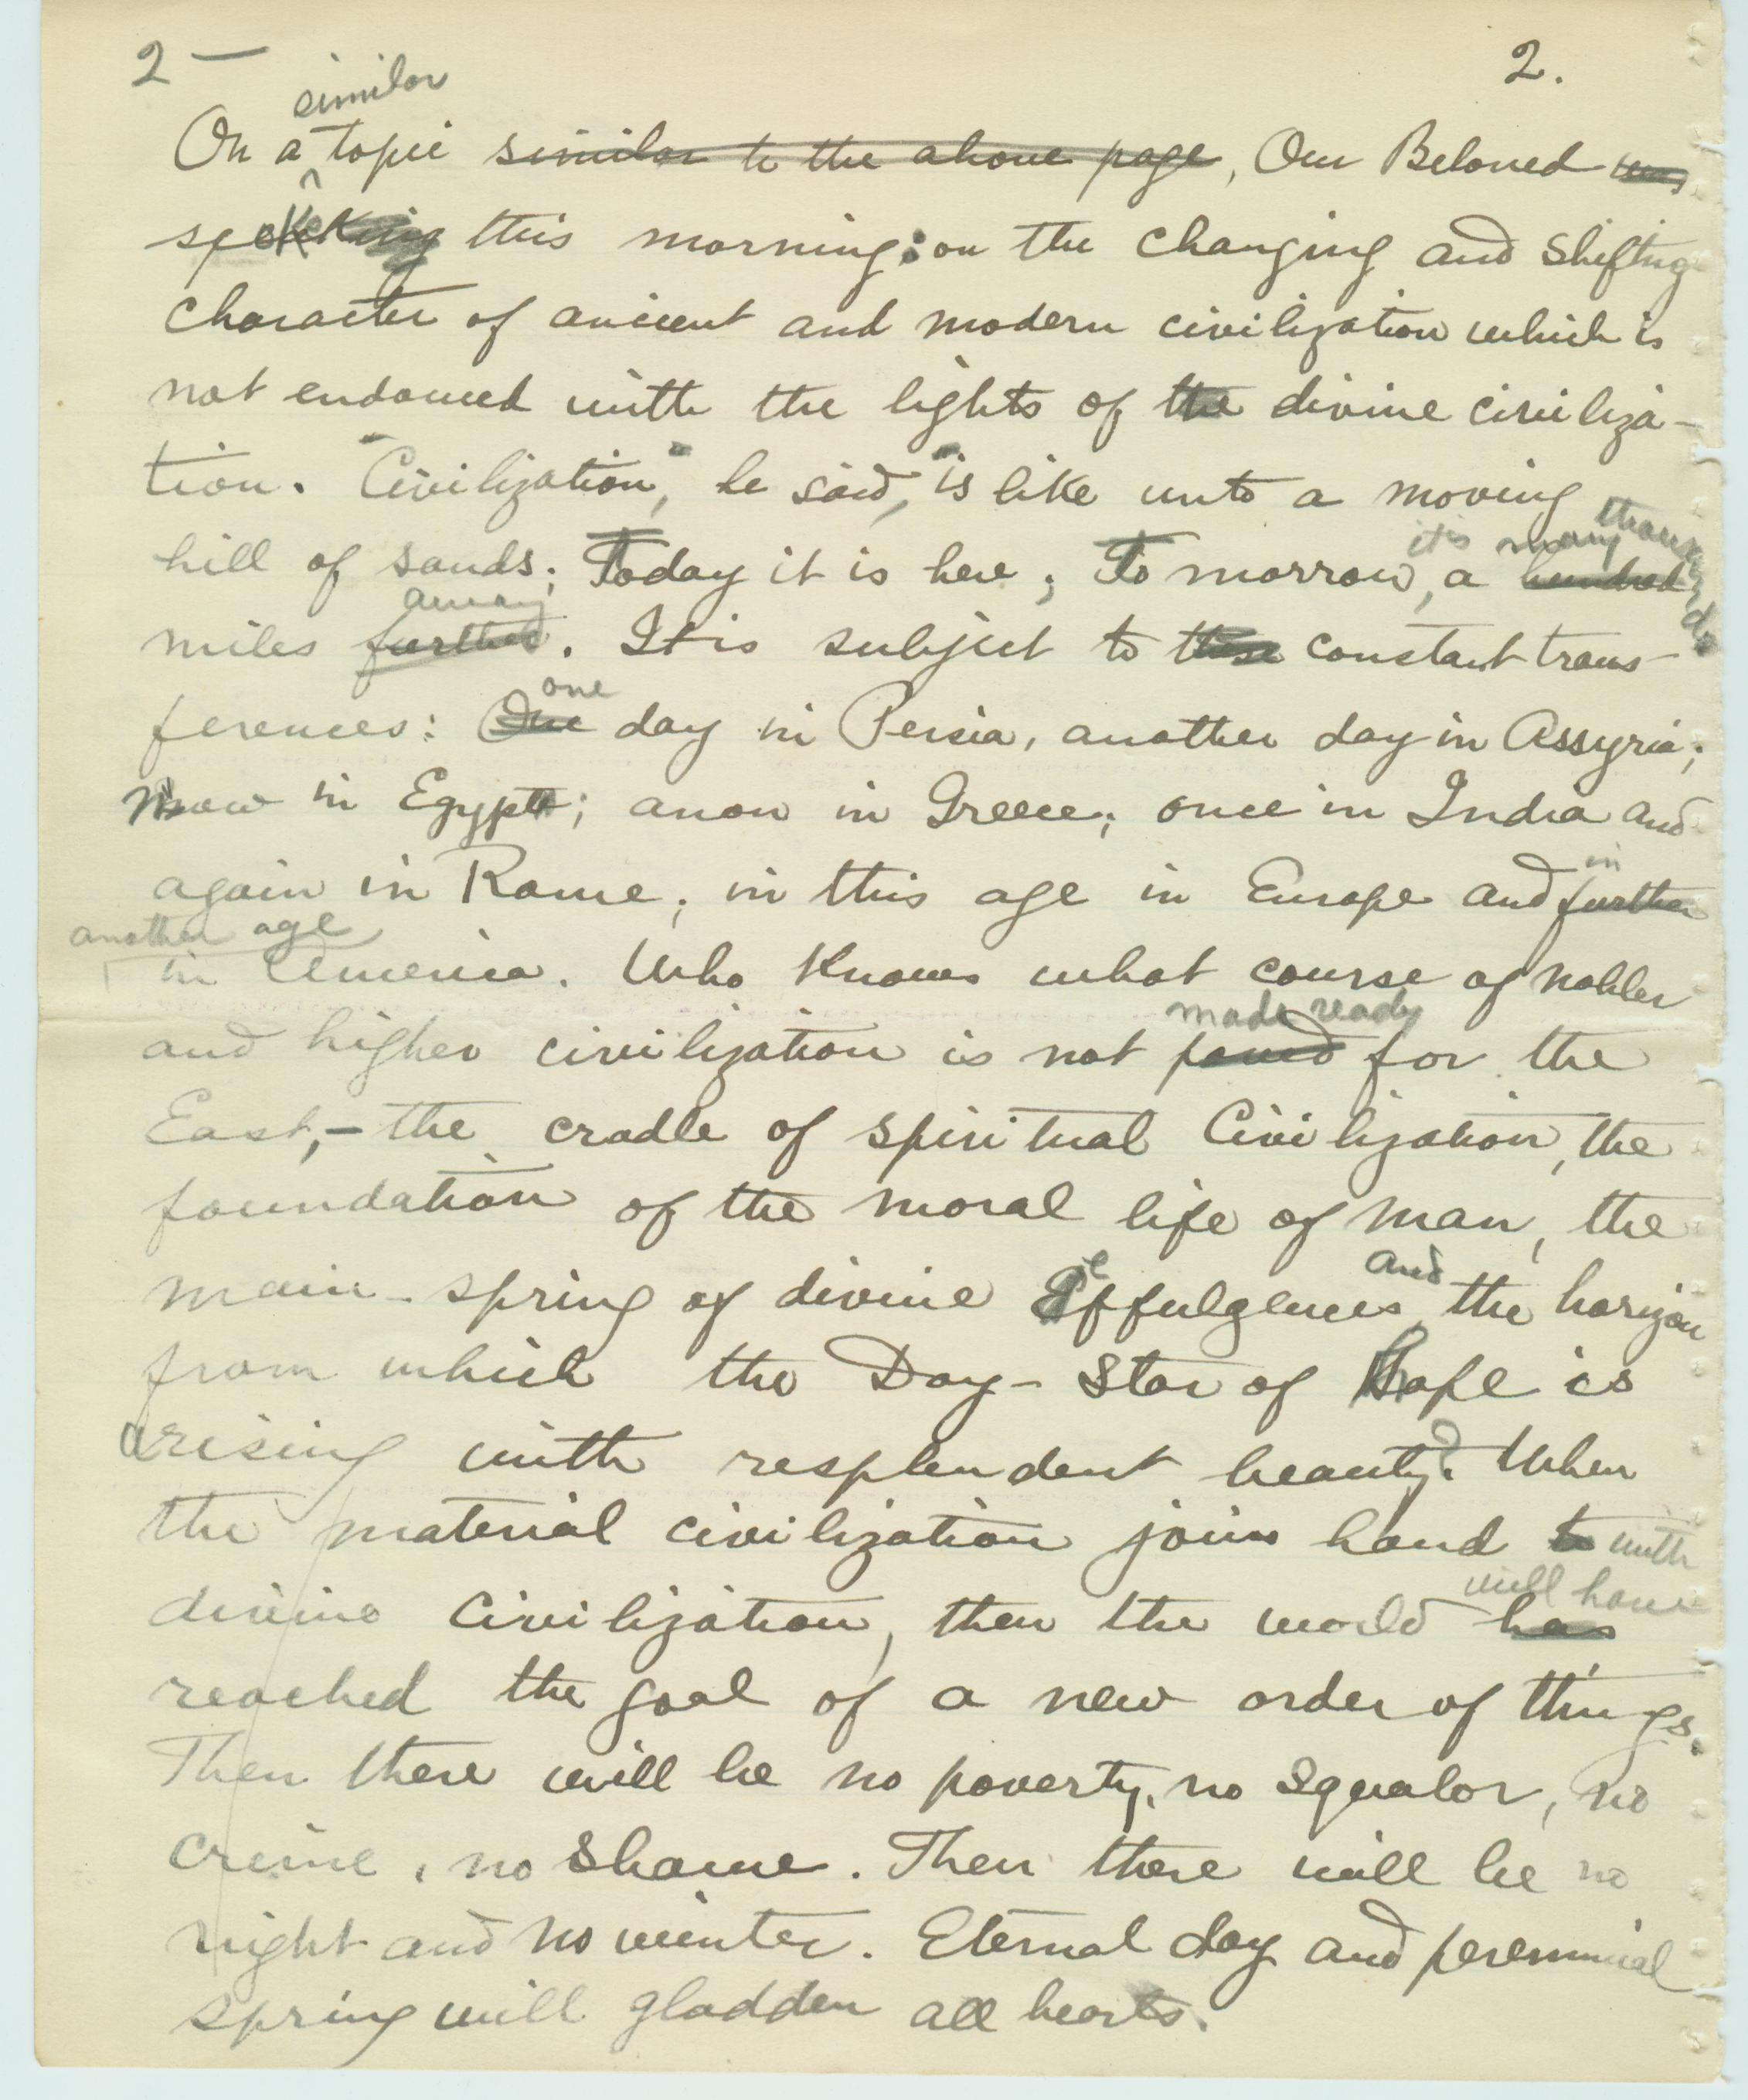 2 — 2.
similar
On a topic similar to the above page, Our Beloved was
spoke this morning: on the changing and shifting
character of ancient and modern civilization which is
not endowed with the lights of the divine civiliza-
tion. "Civilization", he said, "is like unto a moving
it is many thousands
hill of sands; Today it is here; To morrow, a hundred
away
miles further. It is subject to these constant trans-
one
ferences: One day in Persia, another day in Assyria;
now in Egypt; anon in Greece; once in India and
in
again in Rome; in this age in Europe and further
another age
in America. Who Knows what course of nobler
made ready
and higher civilization is not paved for the
East,- the cradle of spiritual Civilization, the
foundation of the moral life of man, the
and
main-spring of divine effulgences, the horizon
from which the Day-Star of Hope is
arising with resplendent beauty? When
the material civilization joins hand to with
will have
divine Civilization, then the world has
reached the goal of a new order of things.
Then there will be no poverty, no squalor, no
crime, no shame. Then there will be no
night and no winter. Eternal day and perennial
spring will gladden all hearts.